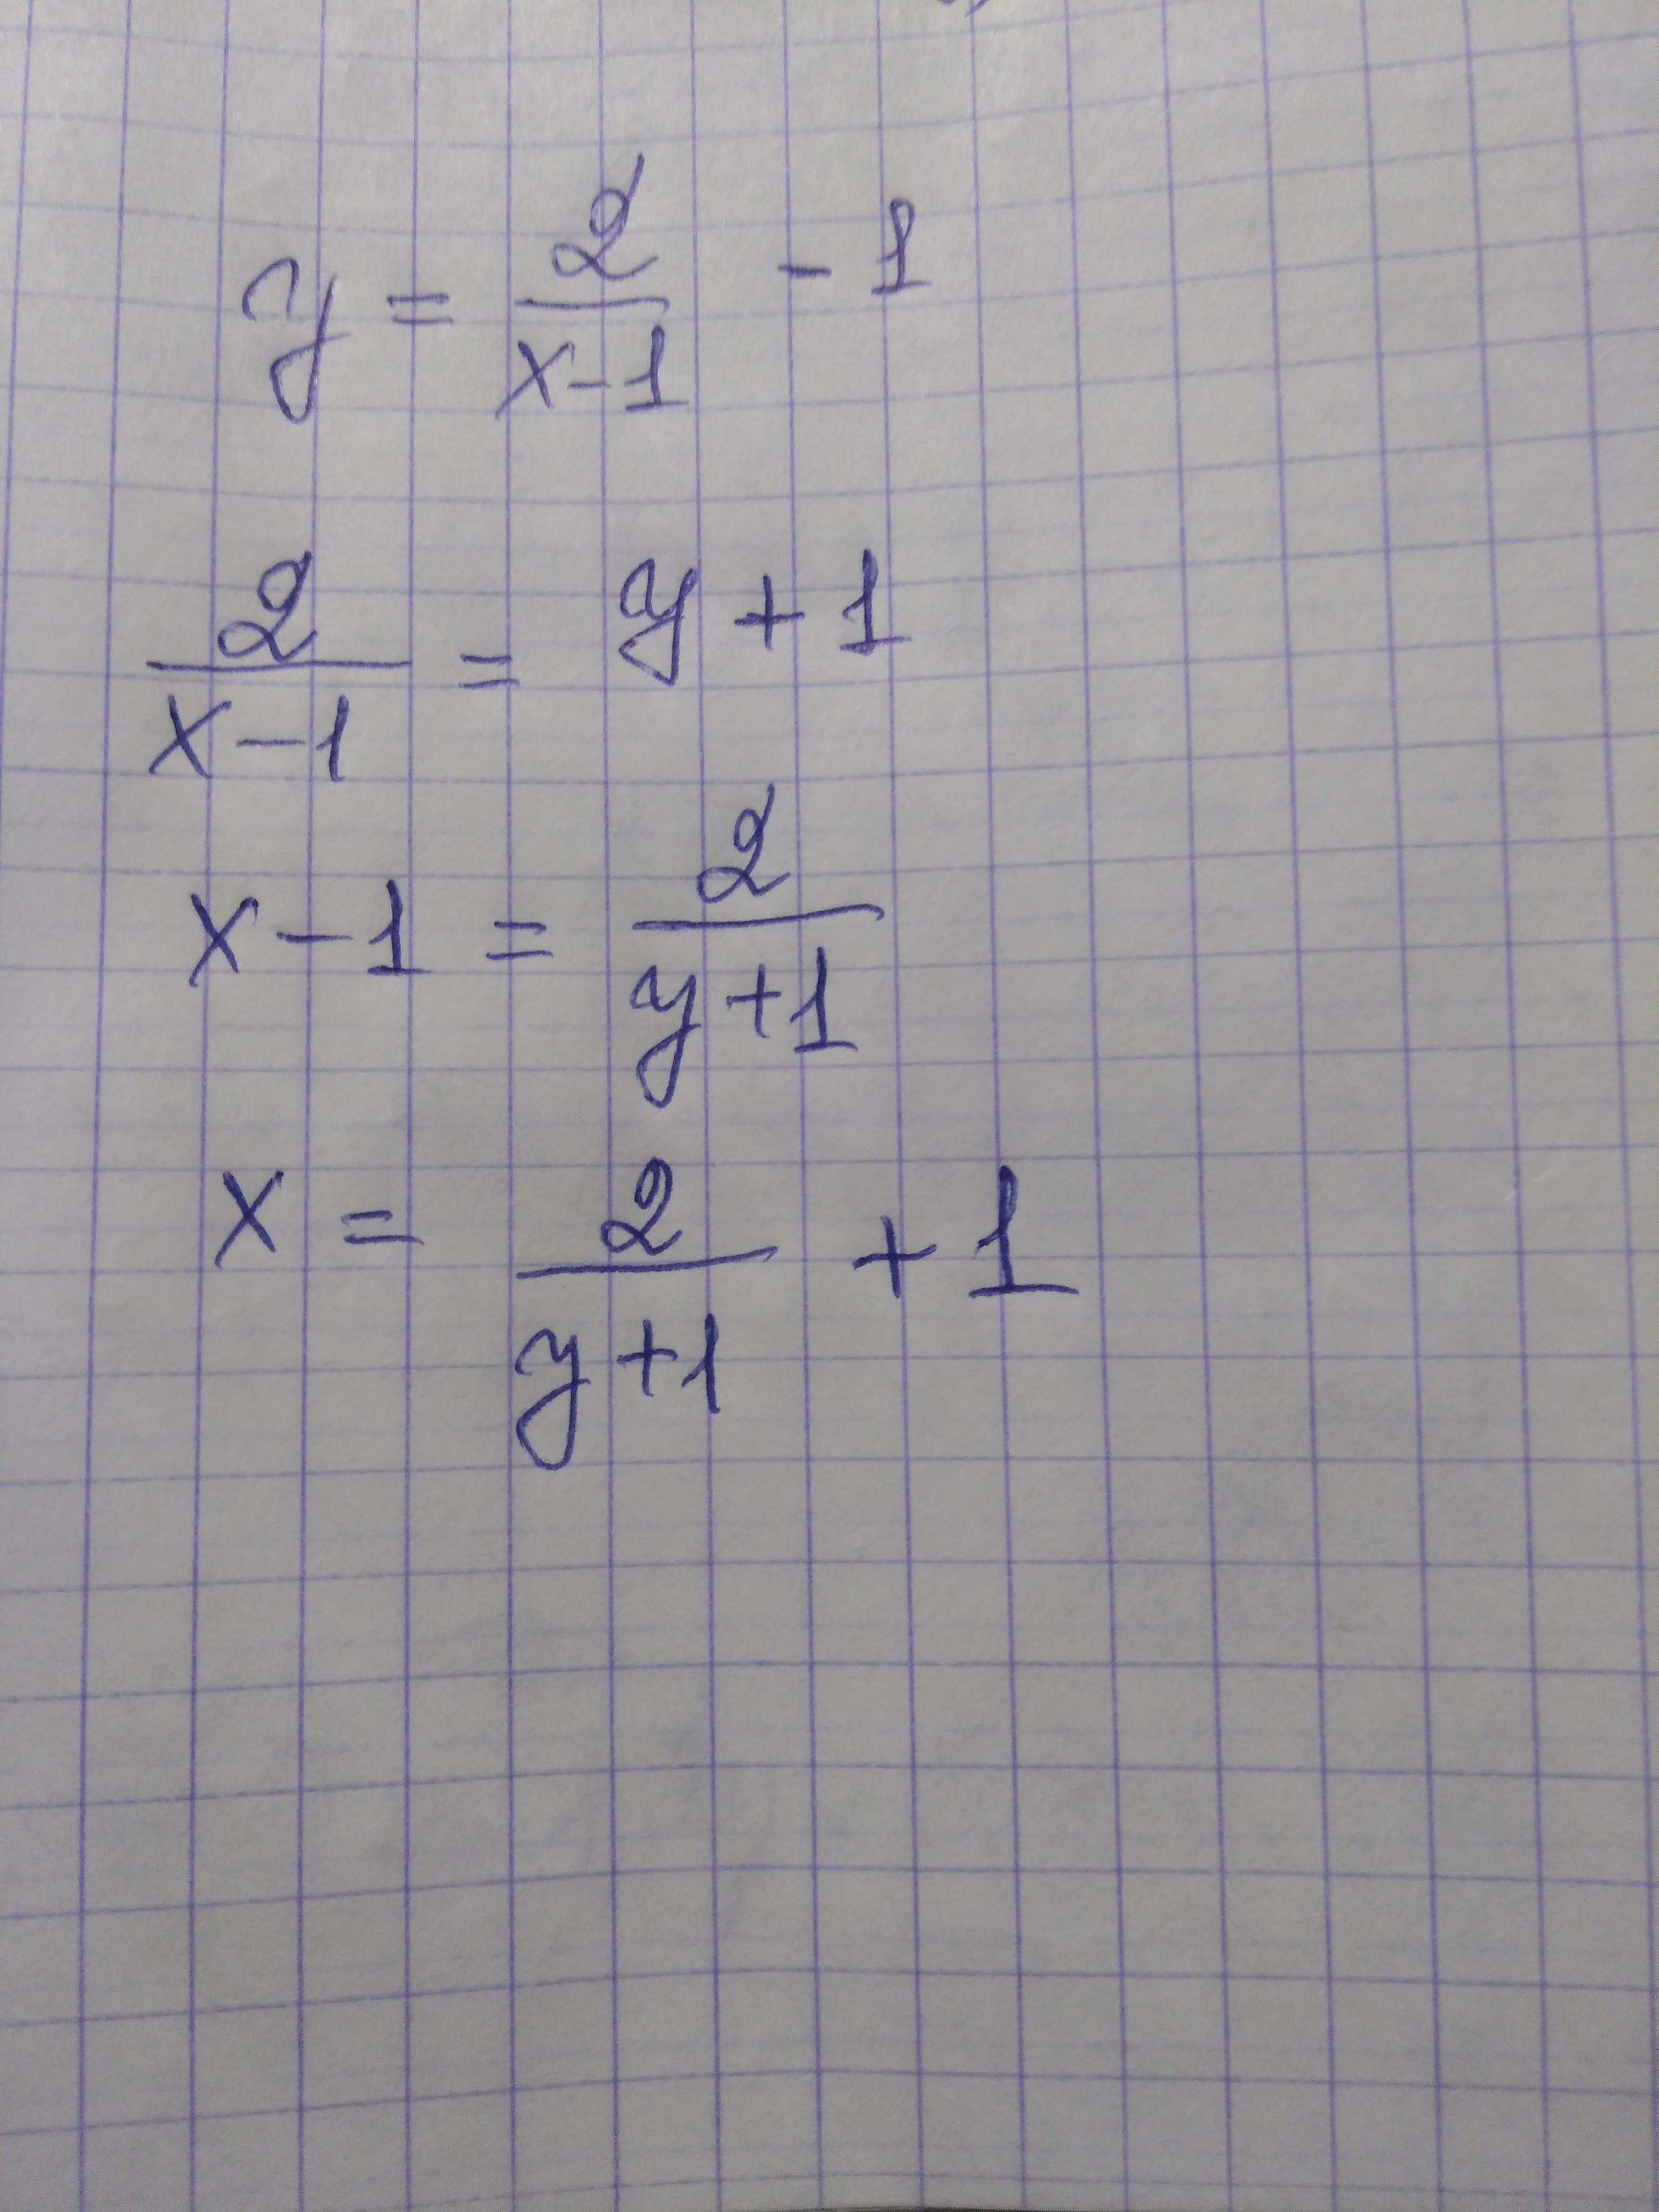 y = 2/(x-1) - 1
2/(x-1) = y + 1
x - 1 = 2/(y+1)
x = 2/(y+1) + 1